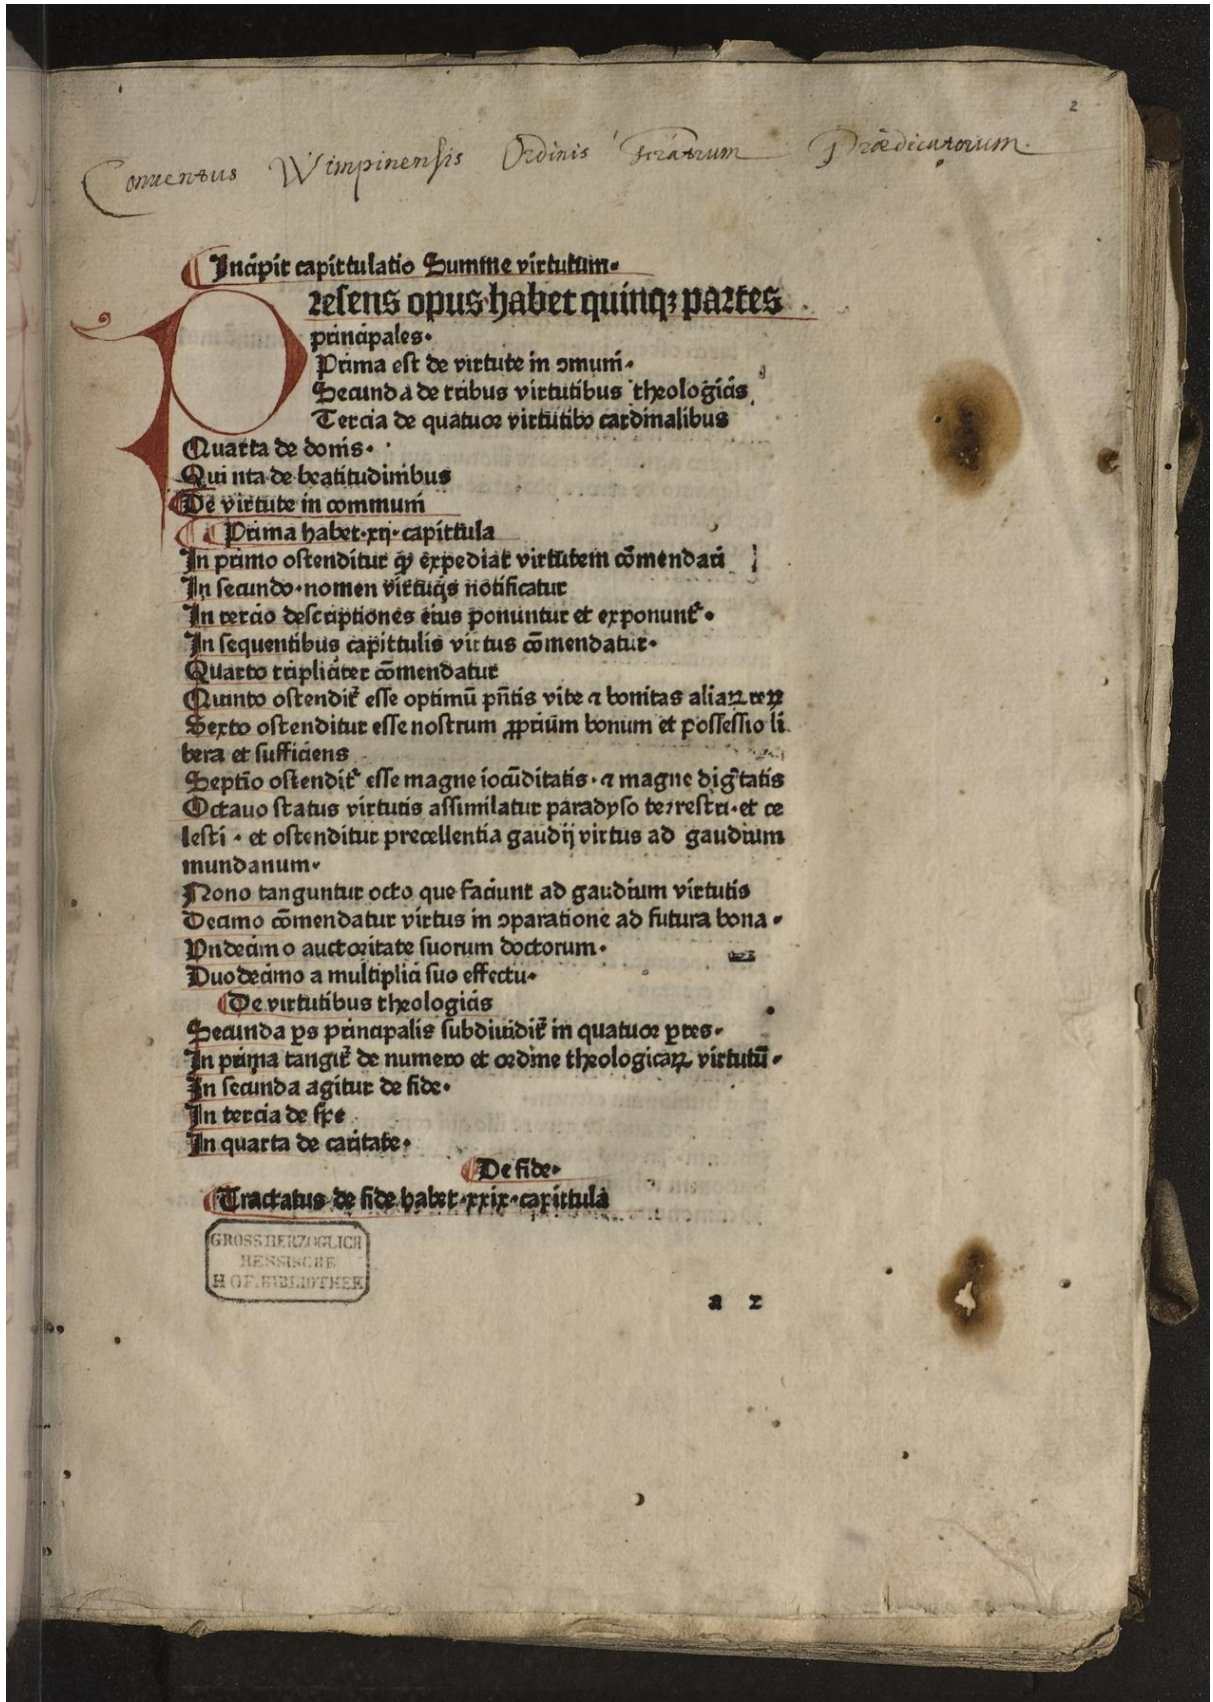 2
Conuentus Wimpinensis Ordinis Fratrum Prædicatorum.
Incipit capittulatio Summe virtutum.
Presens opus habet quinqꝫ partes
principales.
Prima est de virtute in ↄmuni.
Secunda de tribus virtutibus theologicis
Tercia de quatuor virtutibꝰ cardinalibus
Quarta de donis.
Qui nta de beatitudinibus
De virtute in communi
Prima habet .xij. capittula
In primo ostenditur ꝙ expediat virtutem cōmendari
In secundo. nomen virtutis notificatur
In tercio descriptiones eius ponuntur et exponunt᷑.
In sequentibus capittulis virtus cōmendatur.
Quarto tripliciter cōmendatur
Quinto ostendit᷑ esse optimū pn̄tis vite ⁊ bonitas aliaꝝ reꝝ
Sexto ostenditur esse nostrum ꝓprium bonum et possessio li
bera et sufficiens
Septīo ostendit᷑ esse magne iocūditatis. ⁊ magne dig̃tatis
Octauo status virtutis assimilatur paradyso terrestri. et ce
lesti. et ostenditur precellentia gaudij virtus ad gaudium
mundanum.
Nono tanguntur octo que faciunt ad gaudium virtutis
Decimo cōmendatur virtus in ↄparatione ad futura bona.
Vndecimo auctoritate suorum doctorum.
Duodecimo a multiplici suo effectu.
De virtutibus theologicis
Secunda ꝑs principalis subdiuidit᷑ in quatuor ꝑtes.
In prima tangit᷑ de numero et ordine theologicaꝝ virtutū.
In secunda agitur de fide.
In tercia de spe
In quarta de caritate.
De fide.
Tractatus de fide habet .xxix. capittula
GROSSHERZOGLICH
HESSISCHE
HOFBIBLIOTHEK
a 2